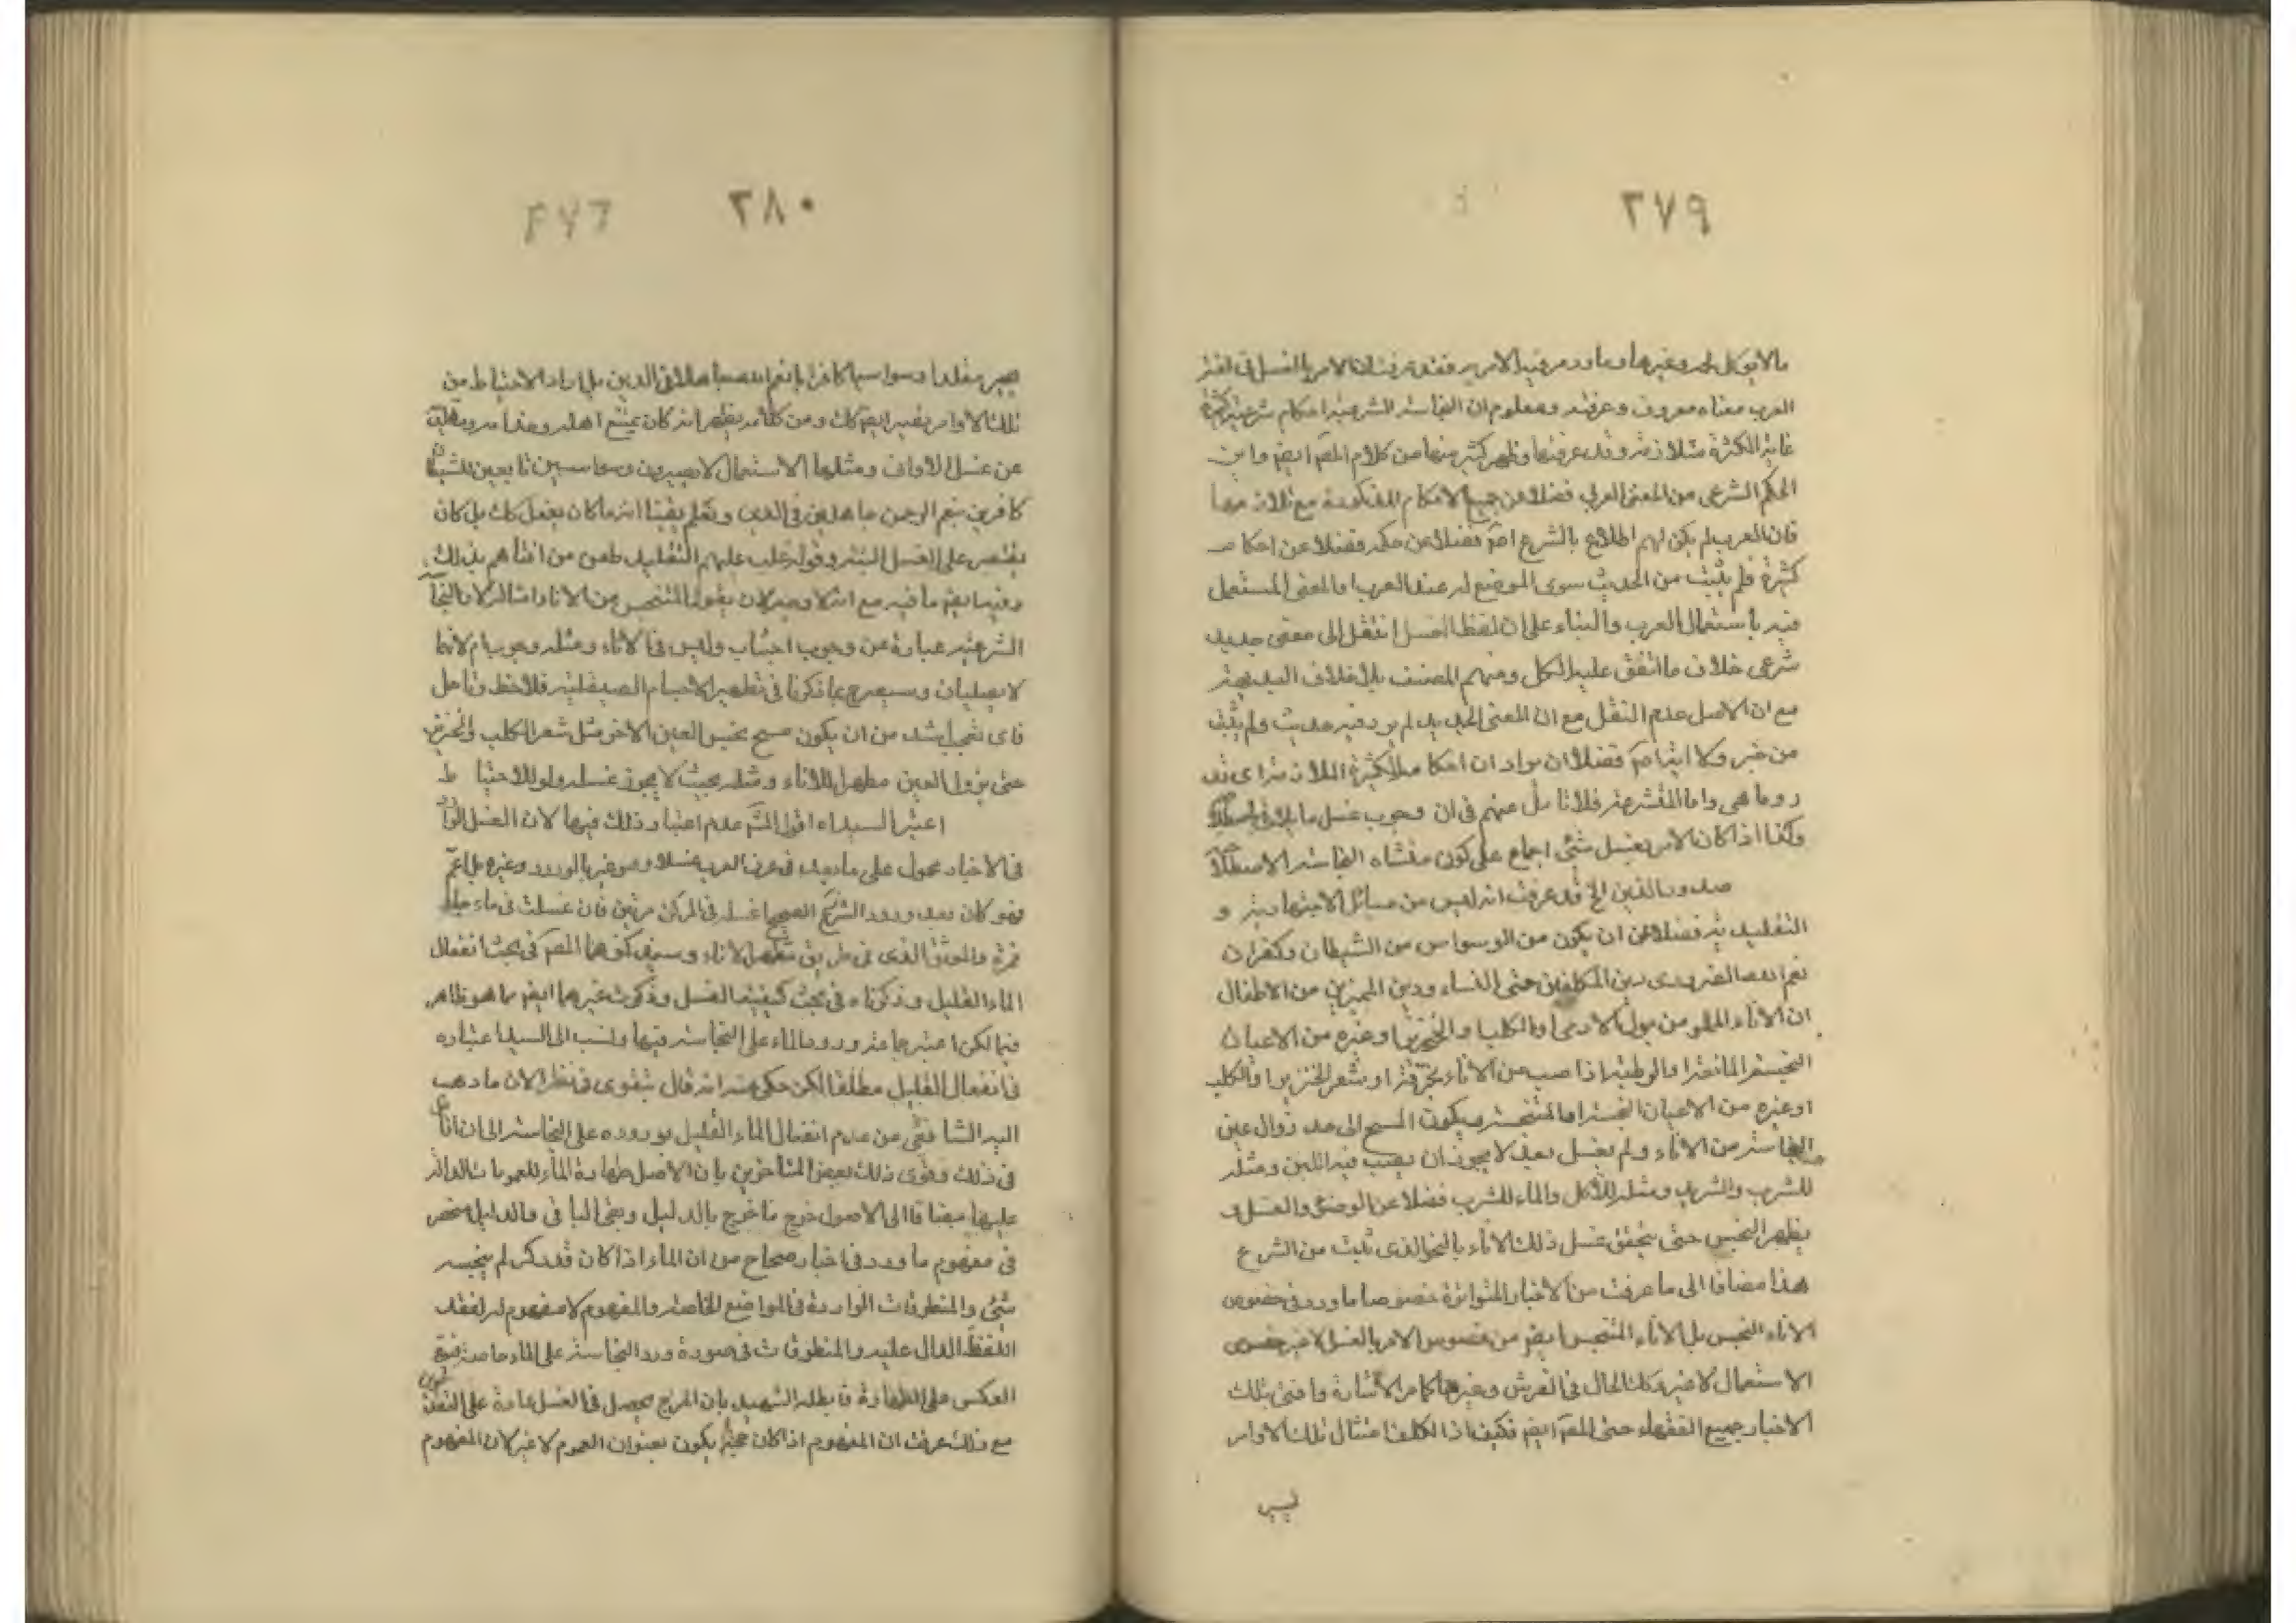 ٢٧٩
مالا يؤكل لحمه وغيرها وما ورد فيه الامر به فقد عرفت ان الامر بالغسل في لغة
العرب معناه معروف وعرفته ومعلوم ان النجاسة الشرعية احكام شرعية كثيرة
غاية الكثرة مثلا زمة وقد عرفتها وظهر كثير منها من كلام المص ايضم واين
الحكم الشرعي من المعنى العرفي فضلا عن جميع الاحكام المذكورة مع تلازمها
فان العرب لم يكن لهم اطلاع بالشرع اصم فضلا عن حكمه فضلا عن احكا مـ
كثيرة فلم يثبت من الحديث سوى الموضع له عند العرب او المعنى المستعمل
فيه باستعمال العرب والبناء على ان لفظ الغسل انتقل الى معنى جديد
شرعي خلاف ما اتفق عليه الكل ومنهم المصنف بل اخلاف البديهة
مع ان الاصل عدم النقل مع ان المعنى الجديد لم يرد فيه حديث ولم يثبت
من خبر ولا اية اصم فضلا ان يراد ان احكا مها الكثيرة المتلازمة اى قد
روما هي واما المتشرعة فلا تأمل منهم في ان وجوب غسل
وكذا اذا كان الامر بغسل شئ اجماع على كون منشاه النجاسة الاصطلا
صدور الذين الخ قد عرفت انه ليس من مسائل الاجتهادية و
التقليدية فضلا عن ان يكون من الوسواس من الشيطان وكفران
نعم الله الضرورى دين المكلفين حتى النساء ودين المميزين من الاطفال
ان الاناء المملو من بول الادمى او الكلب او الخنزير او غيره من الاعيان
النجسة المانعة او الرطبة اذا صب من الاناء بخرقة او بشعر الخنزير او الكلب
او غيره من الاعيان النجسة او المتنجسة ويكون المسح الى حد زوال عين
النجاسة من الاناء ولم يغسل بعد لا يجوز ان يصب فيه اللبن ومثله
للشرب والشريد ومثله للاكل والماء للشرب فضلا عن الوضوء والغسل و
يظهر النجس حتى يتحقق غسل ذلك الاناء بالنحو الذى ثابت من الشرع
هذا مضافا الى ما عرفت من الاخبار المتواترة خصوصا ما ورد في خصوص
الاناء النجس بل الاناء المتنجس ايضم من خصوص الامر بالغسل لا غير خصوص
الاستعمال لا غير وكك الحال في الفرش وغيرها كما مر الاشارة وافتى بتلك
الاخبار جميع الفقهاء حتى المص ايضم فكيف اذا المكلف امتثال تلك الاوامر
٢٨٠
يصير مقلدا وسواسيا كافرا بانعم الله جاهلا في الدين بل اراد الاحتياط من
تلك الاوامر يصير ايضم كك ومن كلامه يظهر انه كان يمنع اهله وخدامه
عن غسل الاواني ومثلها الاستعمال لا يصيرون وسواسيين تابعين للشيطا
كافرين بنعم الرحمن جاهلين في الدين ونعلم يقينا انه ما كان يفعل كك بل كان
يقتصر على الغسل البتة وقوله غلب عليهم التقليد طعن من افتاهم بذلك
وفيه ايضم ما فيه مع انه لا وجه لان يقول المتنجس من الاناء
الشرعية عبارة عن وجوب اجتناب وليس في الاناء ومثله وجوب ام لانها
لا يصليان وسيصرح بما ذكرنا في تطهير الاجسام الصيقلية فلاحظ وتأمل
فاى تعجب اشد من ان يكون مسح نجس العين الاخر مثل شعر الكلب والخنزير
حتى يزول العين مطهرا للاناء ومثله بحيث لا يجوز غسله ولو للاحتيا ط
اعتبر السيد اه اقول المشـ عدم اعتبار ذلك فيها لان الغسل الوا
في الاخبار محمول على ما يعد في عرف العرب غسلا وهو غير بالورود وغيره بل اعم
فهو كان بعد ورود الشرع الصحيح اغسله في المركن مرتين فان غسلت في ماء جار
فمرة والموثق الذى في طريق تطهير الاناء وسيذكرهما المص في بحث انفعال
الماء القليل وذكرناه في بحث كيفية الغسل وذكرت غيرهما ايضم مما هو ظاهر
فيما لكن اعتبر جماعة ورود الماء على النجاسة فيها ونسب الى السيد اعتباره
في انفعال القليل مطلقا لكن حكى عنه انه قال يتقوى في نظر الان ما ذهب
اليه الشافعي من عدم انفعال الماء القليل بوروده على النجاسة
في ذلك وقوى ذلك بعض المتأخرين بان الاصل طهارة الماء للعمومات الدالة
عليها مضافا الى الاصول خرج ما خرج بالدليل وبقى الباقي والدليل منحصر
في مفهوم ما ورد في اخبار صحاح من ان الماء اذا كان قدر كر لم ينجسه
شئ والمنطوقات الواردة في المواضع الخاصة والمفهوم لا مفهوم له لفقد
اللفظ الدال عليه والمنطوقات في صورة ورد النجاسة على الماء خاصة فيبقى
العكس على الطهارة فابطله الشهيد بان المزج يحصل في الغسل عادة على التقديرين
مع ذلك عرفت ان المفهوم اذا كان حجة يكون بعنوان العموم لا غير لان المفهوم